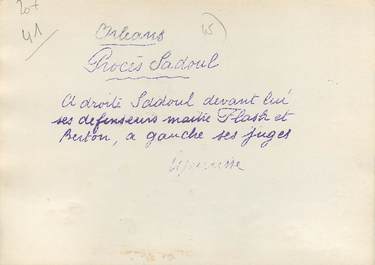 207
41
Orléans
15
Procès Sadoul
A droite Saddoul devant lui
ses defenseurs maitre Flash et
Berton, a gauche ses juges